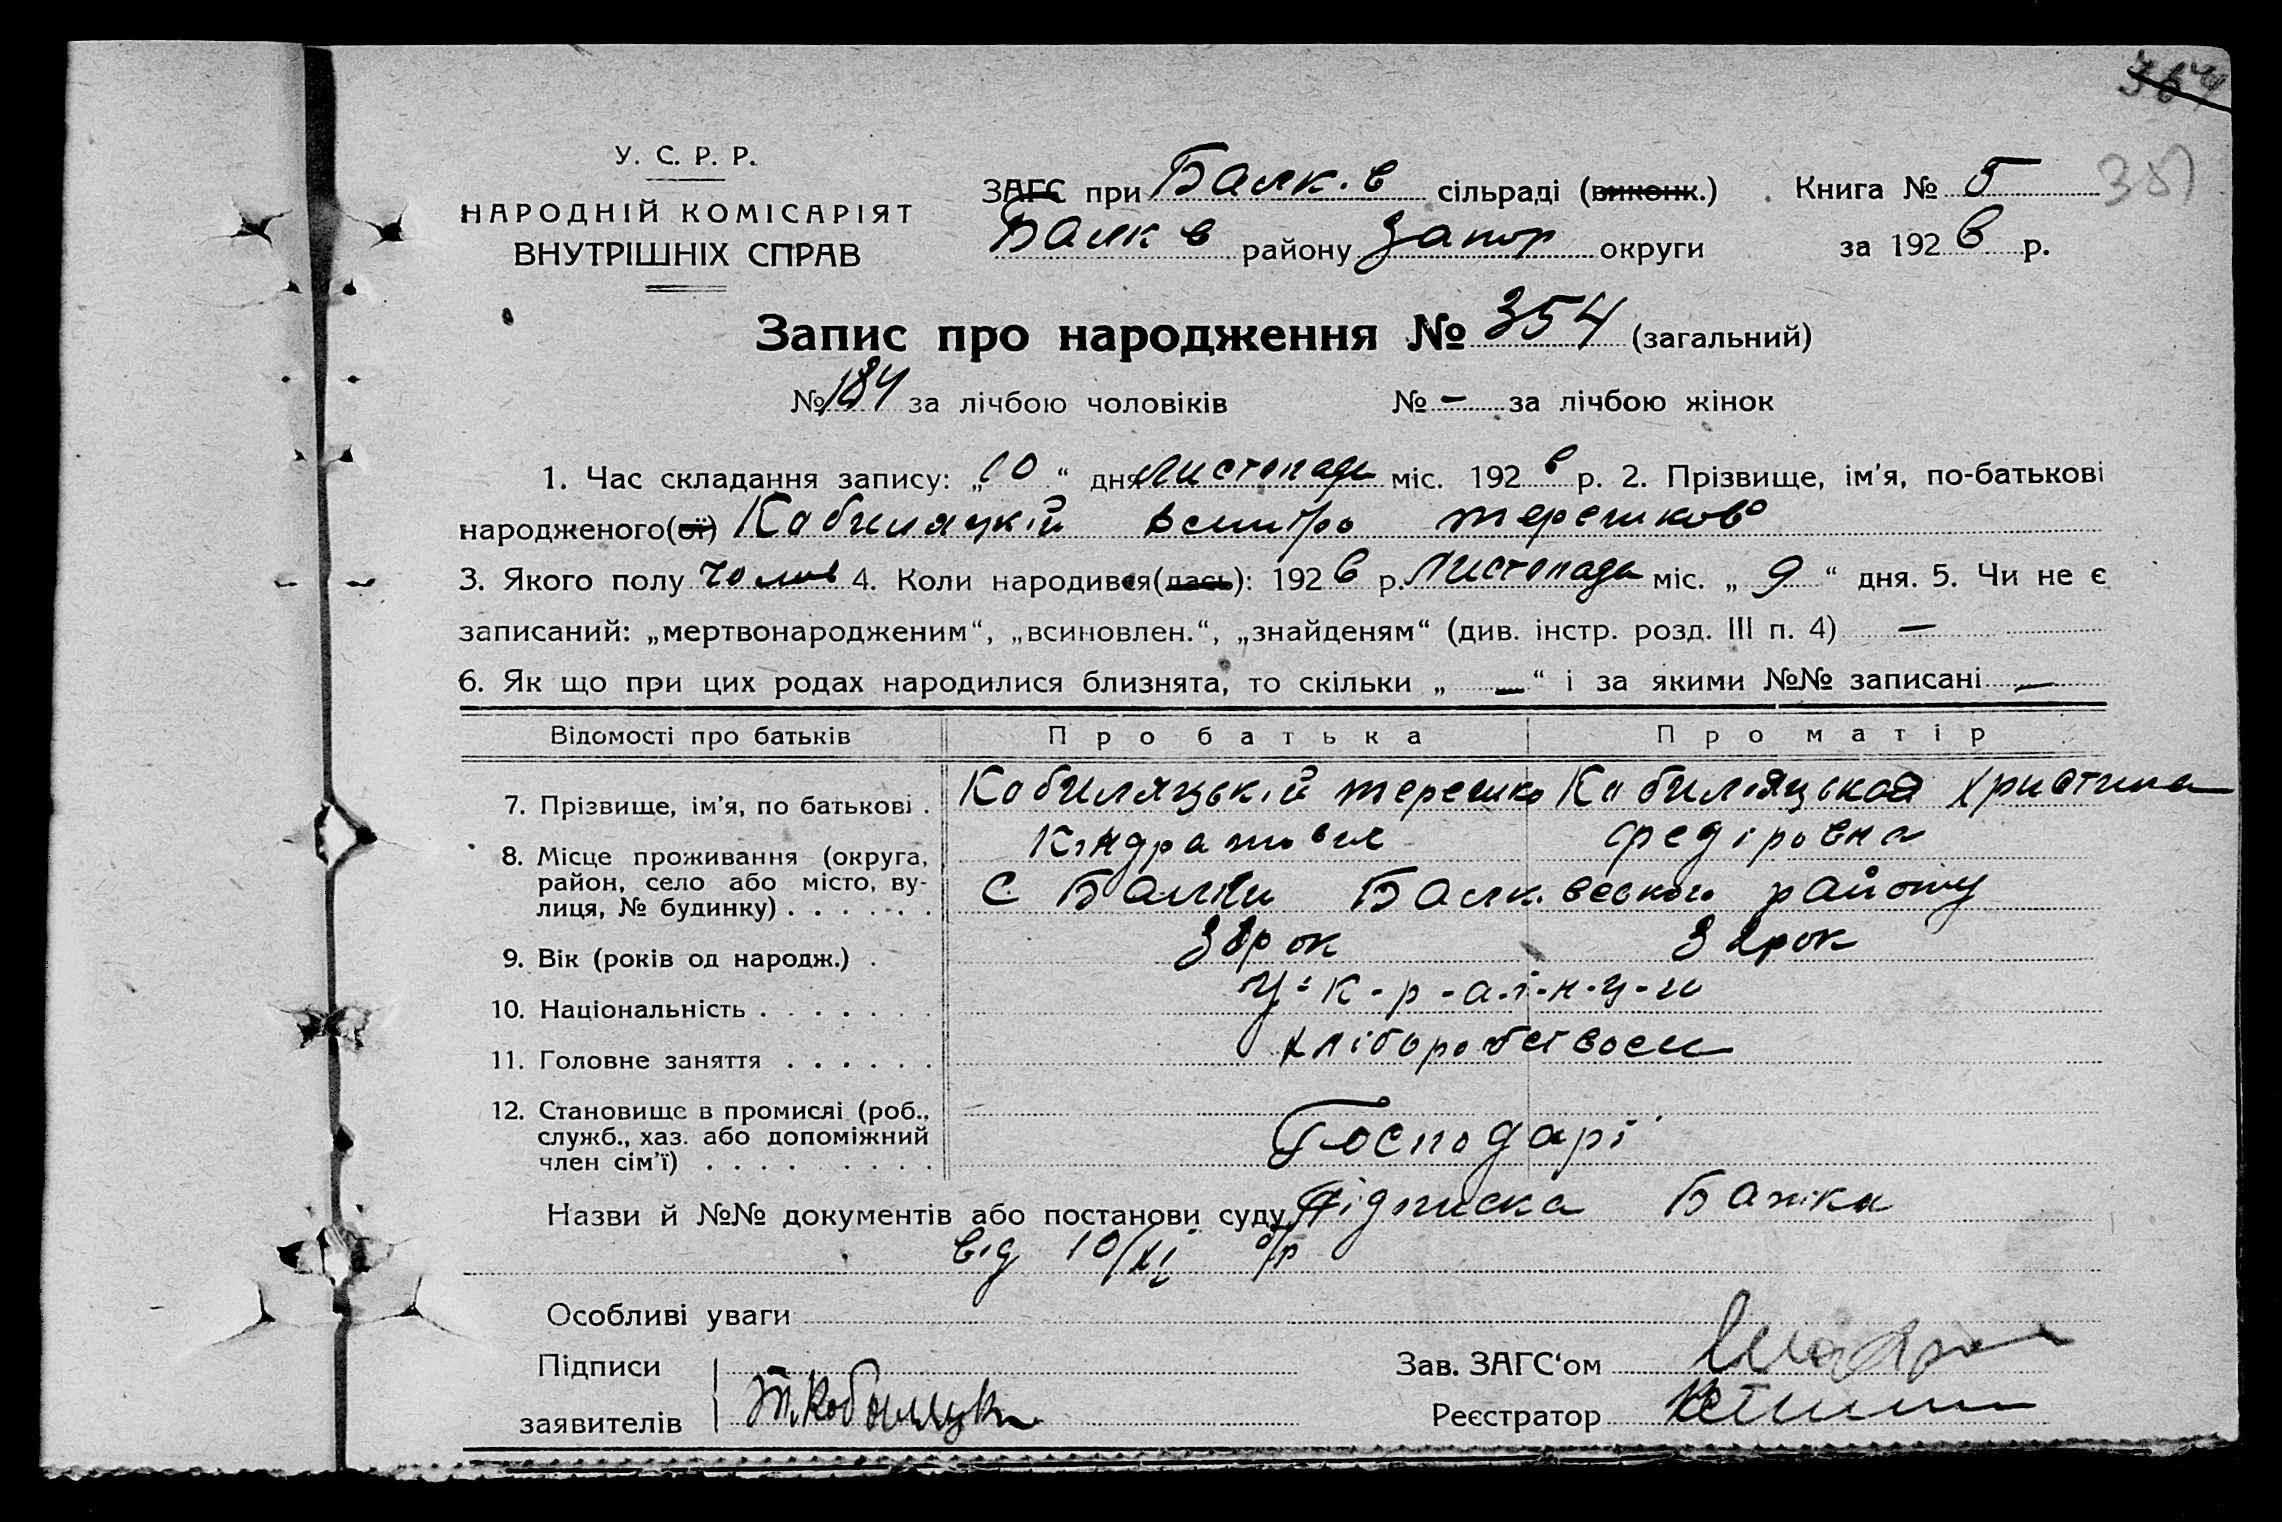 364
У. С. Р. Р.
НАРОДНІЙ КОМІСАРІЯТ
ВНУТРІШНІХ СПРАВ
ЗАГС при Балк. в сільраді (виконк.) Книга № 5
Балк в району Запор округи за 1926 р.
Запис про народження № 354 (загальний)
№ 184 за лічбою чоловіків № – за лічбою жінок
1. Час складання запису: „10“ дня листопада міс. 1926 р. 2. Прізвище, ім'я, по-батькові
народженого(ої) Кобиляцкій терешково
3. Якого полу чолов 4. Коли народився(лась): 1926 р. листопада міс. „9“ дня. 5. Чи не є
записаний: „мертвонародженим“, „всиновлен.“, „знайденям“ (див. інстр. розд. III п. 4) –
6. Як що при цих родах народилися близнята, то скільки „ – “ і за якими №№ записані –
Відомості про батьків Про батька Про матір
7. Прізвище, ім'я, по батькові . Кобиляцькій терешко Кобиляцькоя христина
Кіндратовіч федіровна
8. Місце проживання (округа,
район, село або місто, ву-
лиця, № будинку) . . . . . . с Балки Балківского району
9. Вік (років од народж.) . рок рок
10. Національність . . . . . . . У-к-р-а-ї-н-ц-и
11. Головне заняття . . . . . . хліборобством
12. Становище в промислі (роб.,
служб., хаз. або допоміжний
член сім'ї) . . . . . . . . . Господарі
Назви й №№ документів або постанови суду Підписка Батька
від 10/XI б/р
Особливі уваги
Підписи Зав. ЗАГС'ом
заявителів Т. Кобиляцки Реєстратор